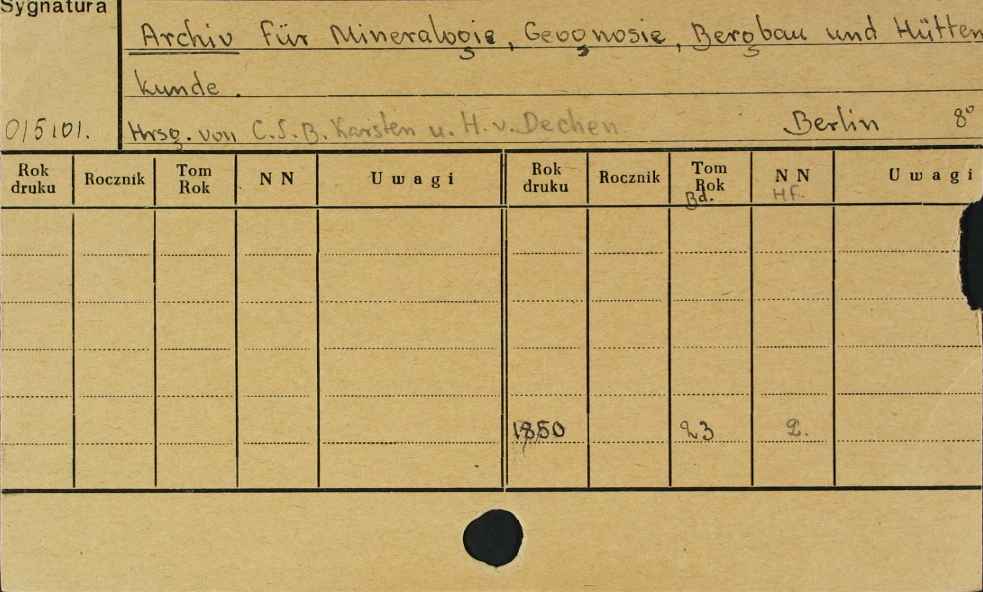 Sygnatura
Archiv für Mineralogie, Geognosie, Bergbau und Hütten
kunde.
015101.
Hrsg. von C.J.B. Karsten u. H. v. Dechen Berlin 8°
Rok druku Rocznik Tom Rok NN Uwagi Rok druku Rocznik Tom Rok NN Uwagi
Bd. Hf.
1850 23 2.